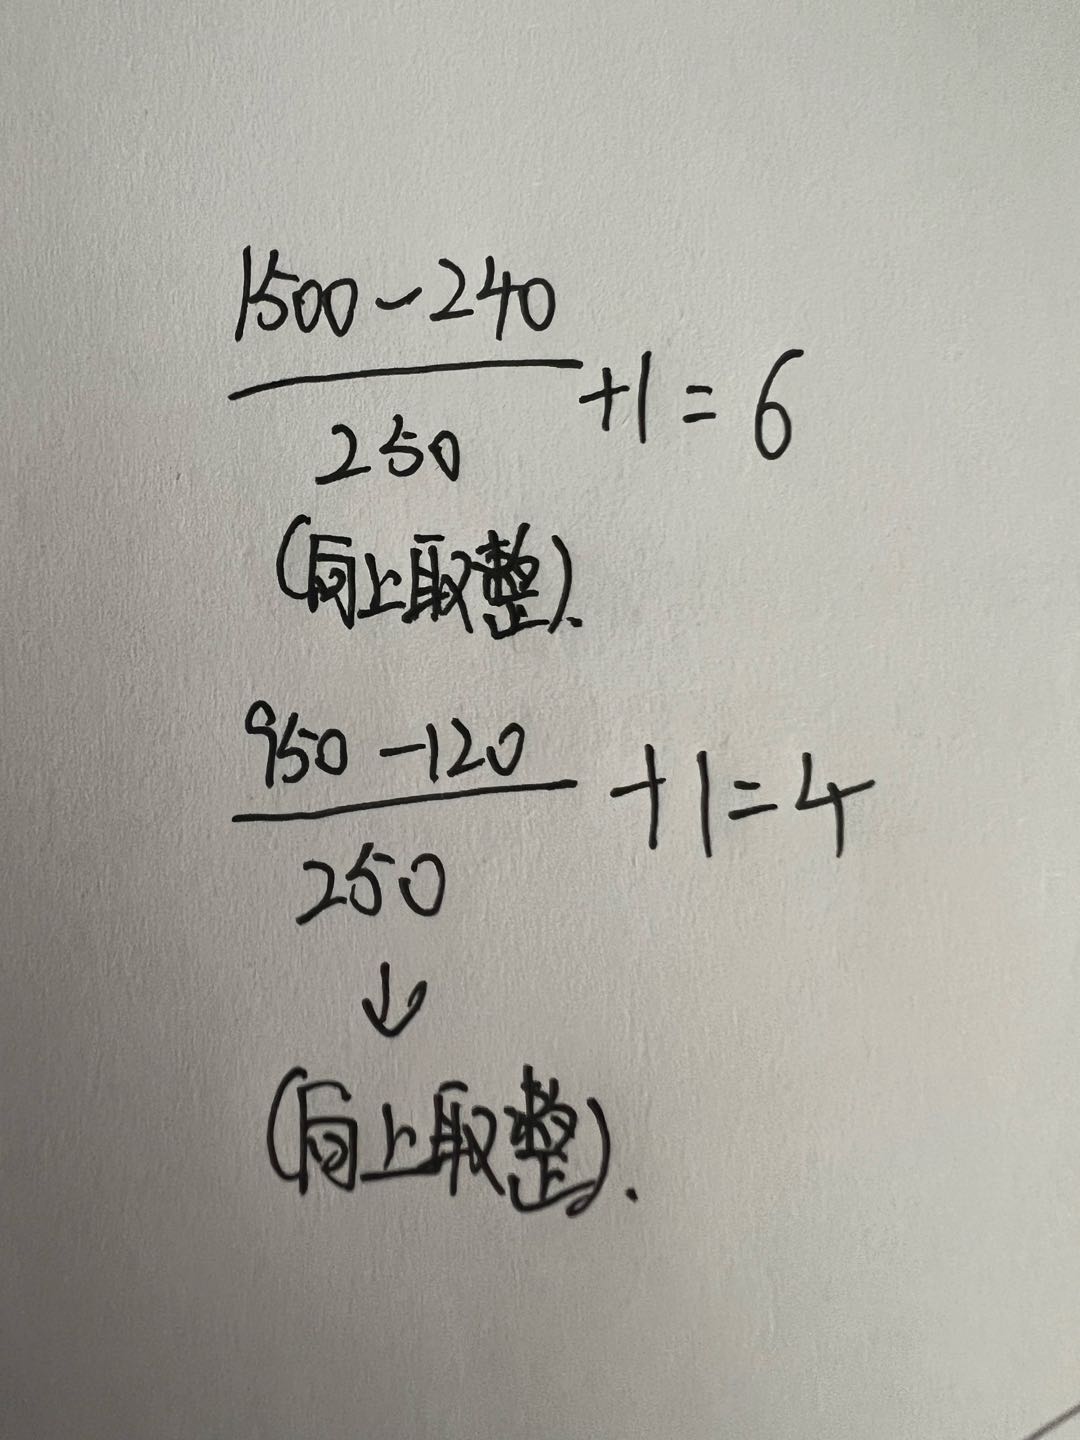 1500-240
250
+1=6
(向上取整).
950-120
250
+1=4
↓
(向上取整).